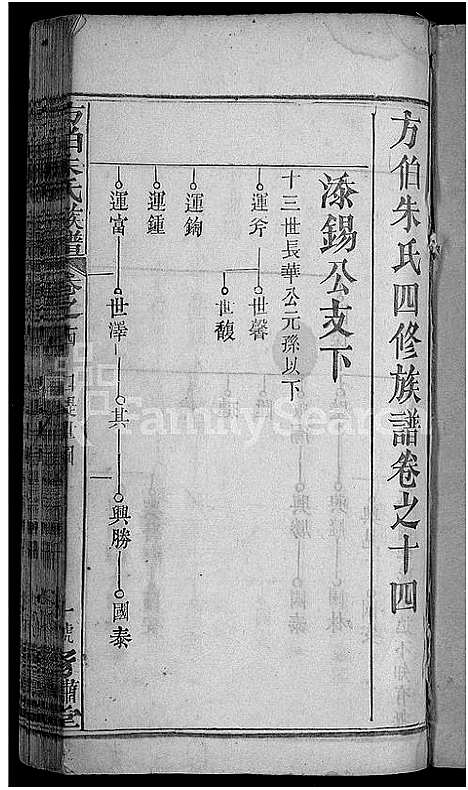 方伯朱氏四修族譜卷之十四
添錫公支下
十三世長華公元孫以下
運斧 世馨
世馥
運鋾
運鍾
運富 世澤 其 興勝 國泰
方伯朱氏族譜 卷之
一號
FamilySearch